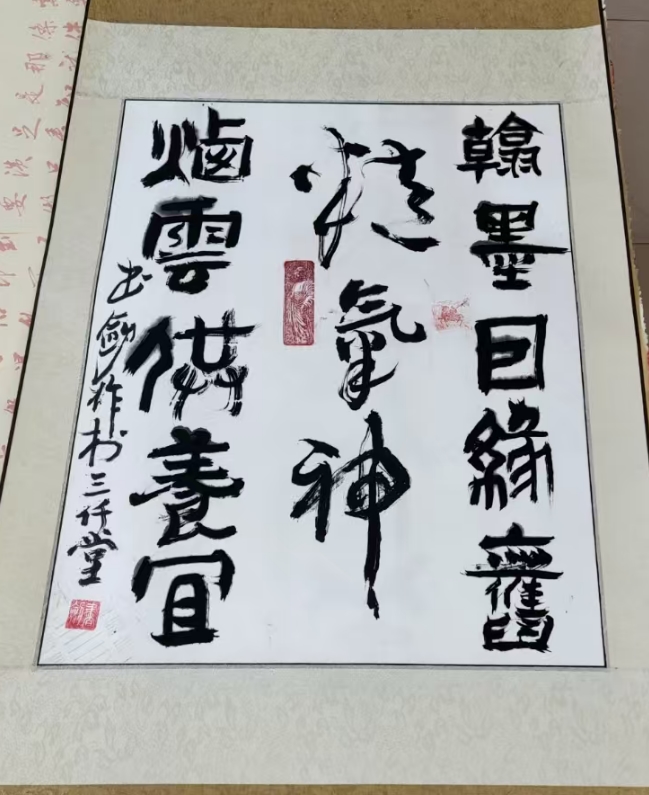 翰墨因緣舊
精氣神
煙雲供養宜
书劍作於三仟堂